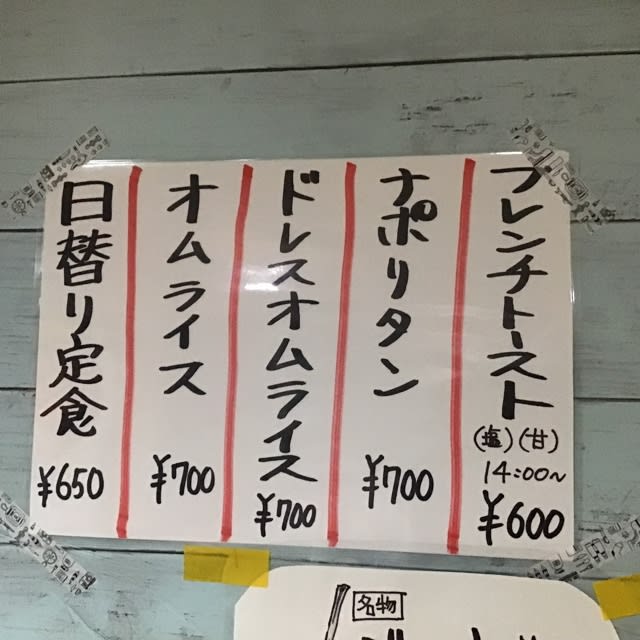 フレンチトースト
(塩)(甘)
14:00~
¥600
ナポリタン
¥700
ドレスオムライス
¥700
オムライス
¥700
日替り定食
¥650
名物